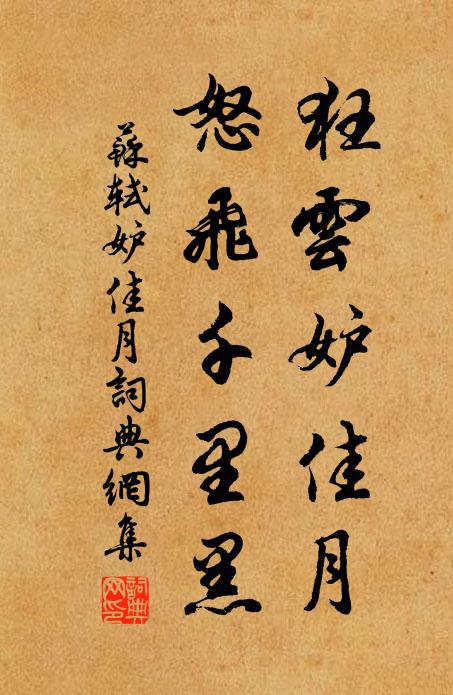 狂雲妒佳月
怒飛千里黑
蘇軾妒佳月詞典網集
詞典
网印